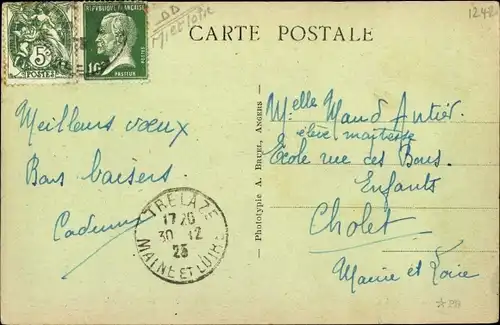 1242
RÉPUBLIQUE FRANÇAISE
5c
POSTES
10c
POSTES
PASTEUR
CARTE POSTALE
Meilleurs vœux
Bons baisers
TRELAZE
17 20
30 12
25
MAINE ET LOIRE
Phototypie A. Bruel, Angers
Melle Maud Antier
élève maîtresse
École rue des Bons
Enfants
Cholet
Maine et Loire